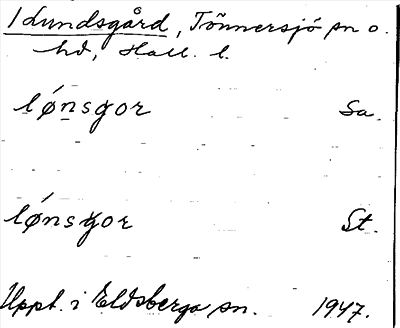 1 Lundsgård, Tönnersjö sn o.
hd, Hall. l.
lǿnsgor Sa.
lǿnsgor St.
Uppt. i Eldsberga sn. 1947.